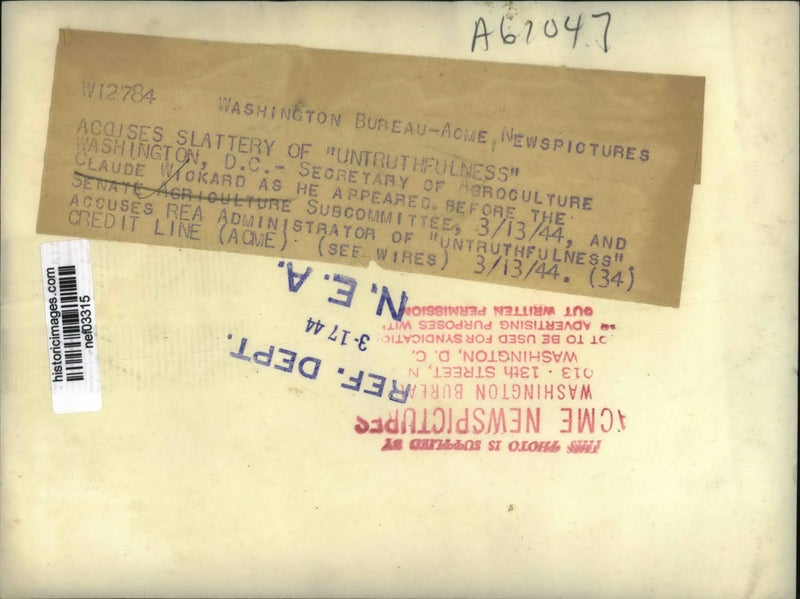 A62047
W12784
WASHINGTON BUREAU-ACME, NEWSPICTURES
ACCUSES SLATTERY OF "UNTRUTHFULNESS"
WASHINGTON, D.C.- SECRETARY OF AGROCULTURE
CLAUDE WICKARD AS HE APPEARED BEFORE THE
SENATE AGRICULTURE SUBCOMMITTEE, 3/13/44, AND
ACCUSES REA ADMINISTRATOR OF "UNTRUTHFULNESS".
CREDIT LINE (ACME) (SEE WIRES) 3/13/44. (34)
historicimages.com
nef03315
REF. DEPT.
3-17 44
N.E.A.
THIS PHOTO IS SUPPLIED BY
ACME NEWSPICTURES
WASHINGTON BUREAU
013 - 13th STREET, N
WASHINGTON, D. C.
OT TO BE USED FOR SYNDICATIO
ADVERTISING PURPOSES WIT
OUT WRITTEN PERMISSION